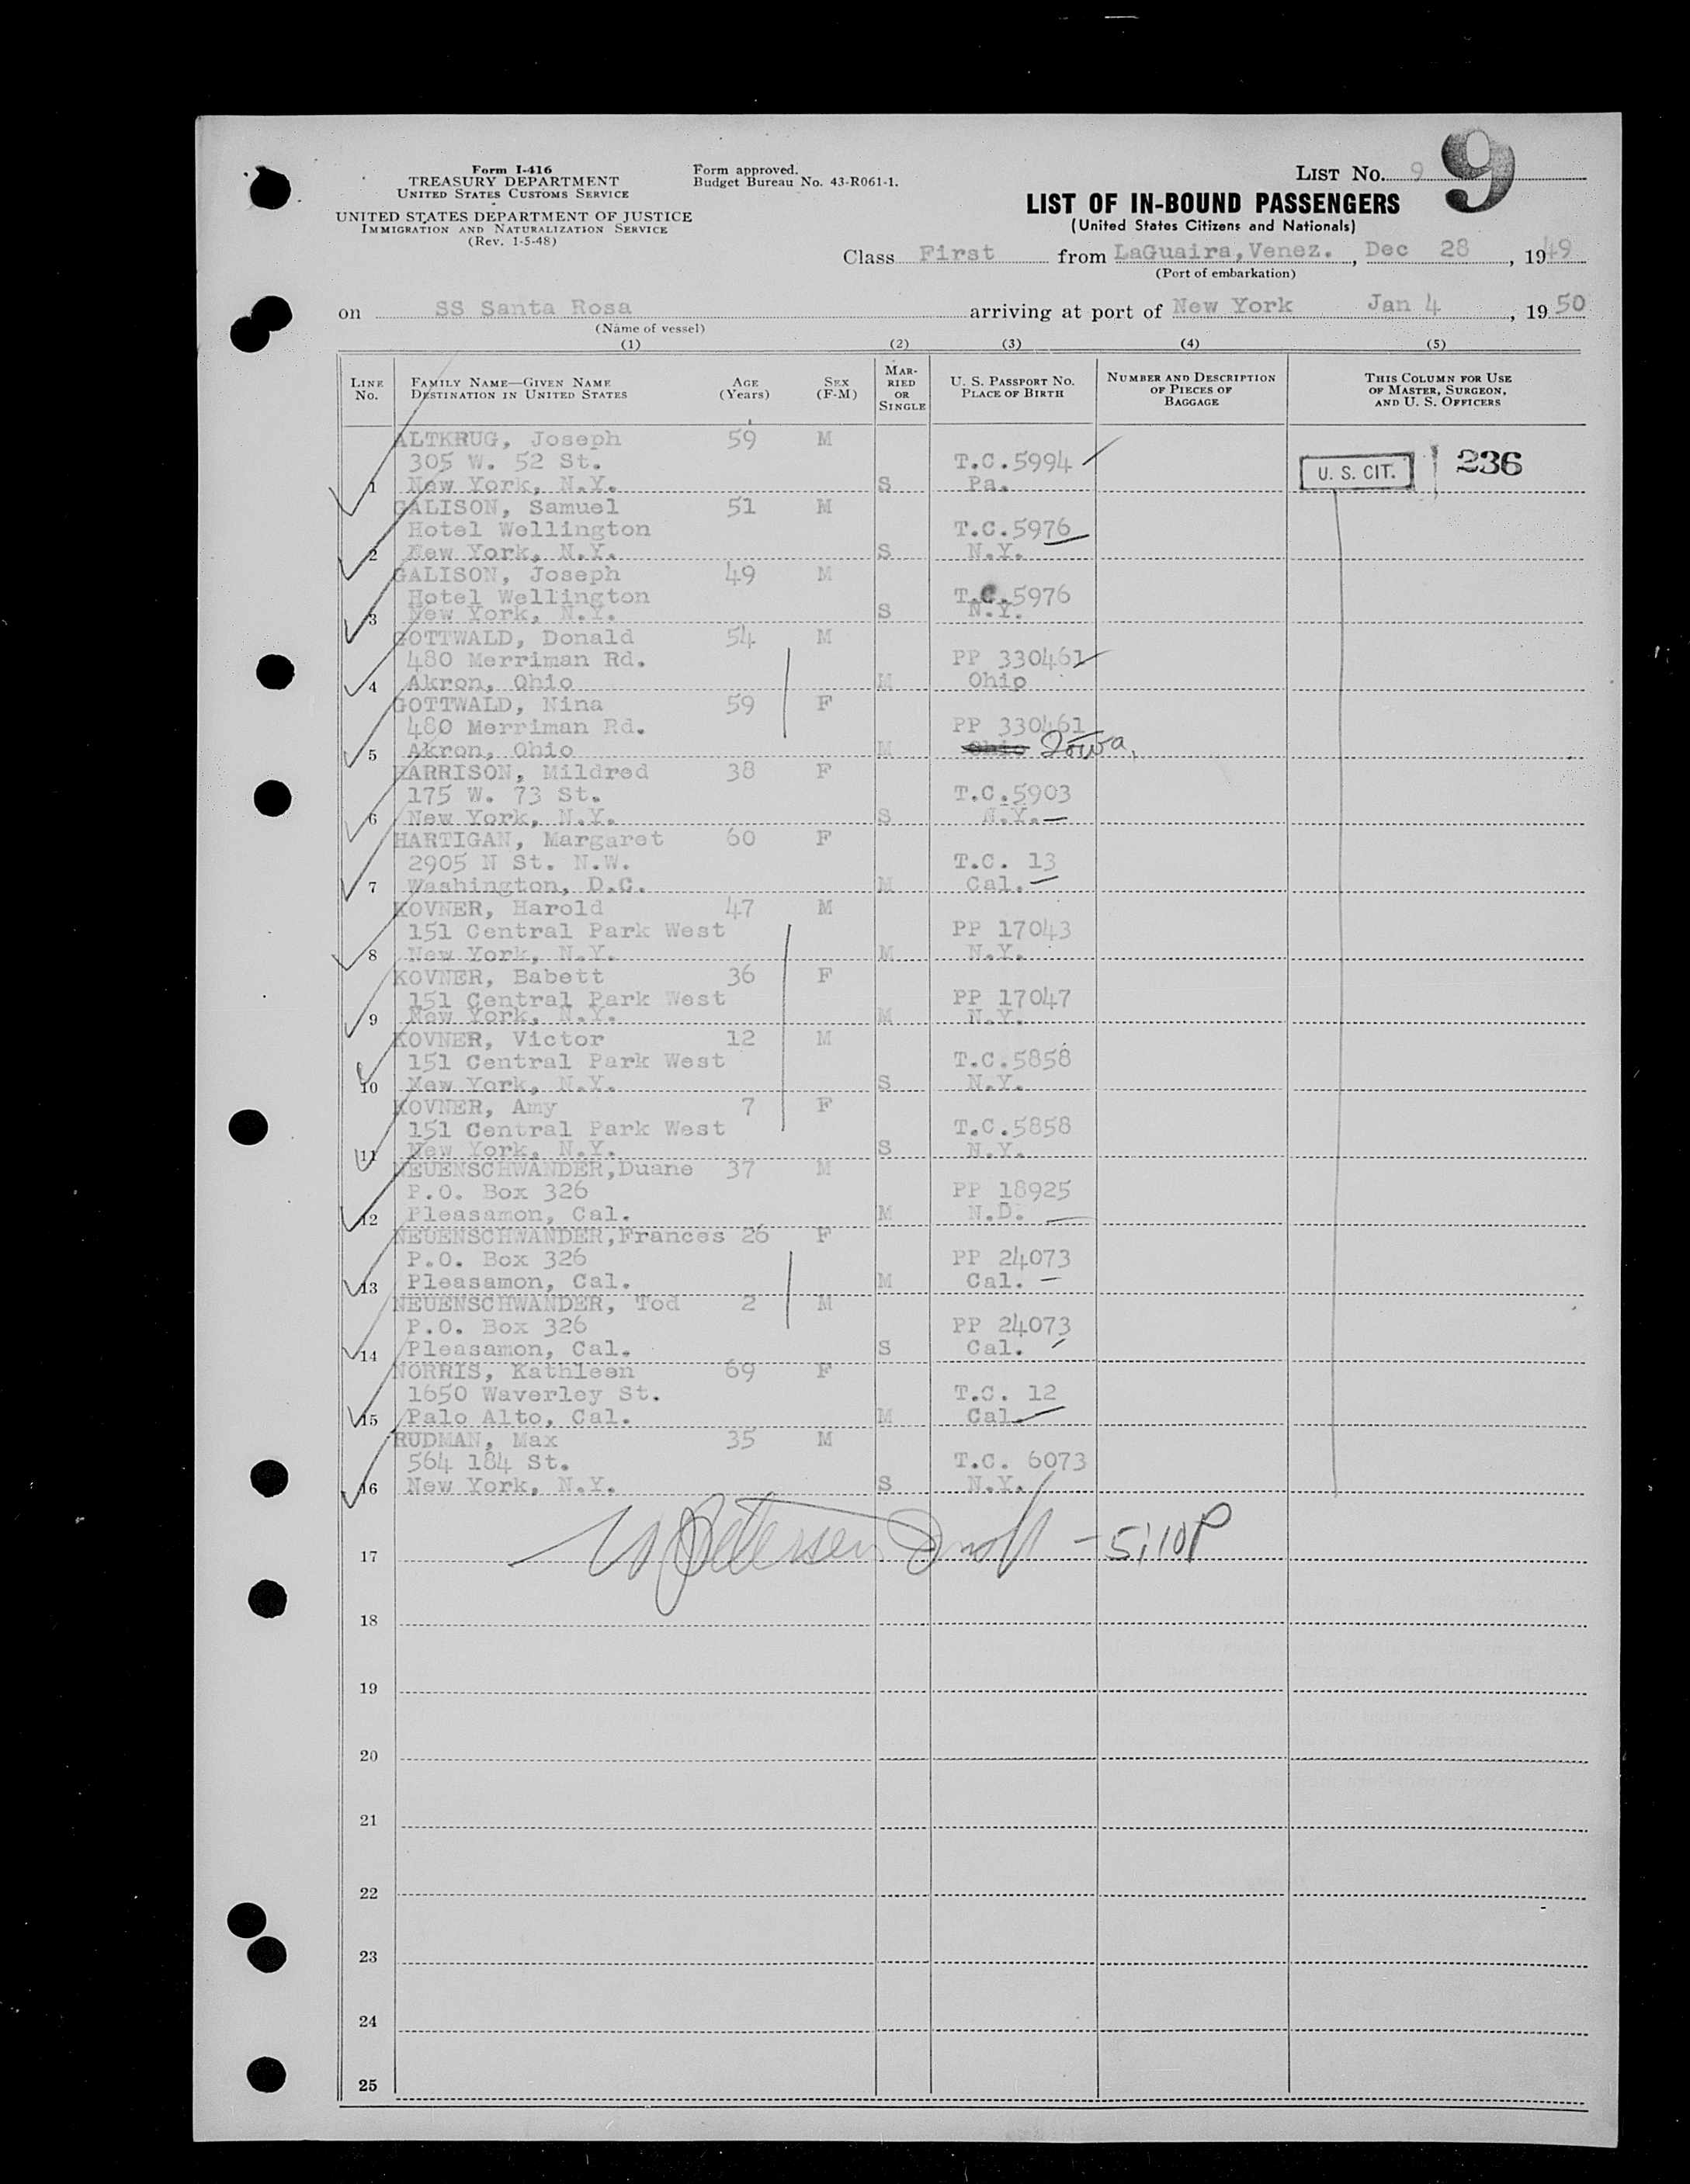 Form I-416
TREASURY DEPARTMENT
UNITED STATES CUSTOMS SERVICE
UNITED STATES DEPARTMENT OF JUSTICE
IMMIGRATION AND NATURALIZATION SERVICE
(Rev. 1-5-48)
Form approved.
Budget Bureau No. 43-R061-1.
LIST No. 9 9
LIST OF IN-BOUND PASSENGERS
(United States Citizens and Nationals)
Class First from LaGuaira, Venez., Dec 28, 1949
(Port of embarkation)
on SS Santa Rosa arriving at port of New York Jan 4, 1950
(Name of vessel)
(1) (2) (3) (4) (5)
LINE No. FAMILY NAME—GIVEN NAME DESTINATION IN UNITED STATES AGE (Years) SEX (F-M) MARRIED OR SINGLE U. S. PASSPORT NO. PLACE OF BIRTH NUMBER AND DESCRIPTION OF PIECES OF BAGGAGE THIS COLUMN FOR USE OF MASTER, SURGEON, AND U. S. OFFICERS
ALTKRUG, Joseph 59 M
305 W. 52 St. T.C.5994 U. S. CIT. 236
1 New York, N.Y. S Pa.
GALISON, Samuel 51 M
Hotel Wellington T.C.5976
2 New York, N.Y. S N.Y.
GALISON, Joseph 49 M
Hotel Wellington T.C.5976
3 New York, N.Y. S N.Y.
GOTTWALD, Donald 54 M
480 Merriman Rd. PP 330461
4 Akron, Ohio M Ohio
GOTTWALD, Nina 59 F
480 Merriman Rd. PP 330461
5 Akron, Ohio M Ohio Iowa,
HARRISON, Mildred 38 F
175 W. 73 St. T.C.5903
6 New York, N.Y. S N.Y.
HARTIGAN, Margaret 60 F
2905 N St. N.W. T.C. 13
7 Washington, D.C. M Cal.
KOVNER, Harold 47 M
151 Central Park West PP 17043
8 New York, N.Y. M N.Y.
KOVNER, Babett 36 F
151 Central Park West PP 17047
9 New York, N.Y. M N.Y.
KOVNER, Victor 12 M
151 Central Park West T.C.5858
10 New York, N.Y. S N.Y.
KOVNER, Amy 7 F
151 Central Park West T.C.5858
11 New York, N.Y. S N.Y.
NEUENSCHWANDER,Duane 37 M
P.O. Box 326 PP 18925
12 Pleasamon, Cal. M N.D.
NEUENSCHWANDER,Frances 26 F
P.O. Box 326 PP 24073
13 Pleasamon, Cal. M Cal.
NEUENSCHWANDER, Tod 2 M
P.O. Box 326 PP 24073
14 Pleasamon, Cal. S Cal.
NORRIS, Kathleen 69 F
1650 Waverley St. T.C. 12
15 Palo Alto, Cal. M Cal
RUDMAN, Max 35 M
564 184 St. T.C. 6073
16 New York, N.Y. S N.Y.
17 Petersen - 5:10P
18
19
20
21
22
23
24
25